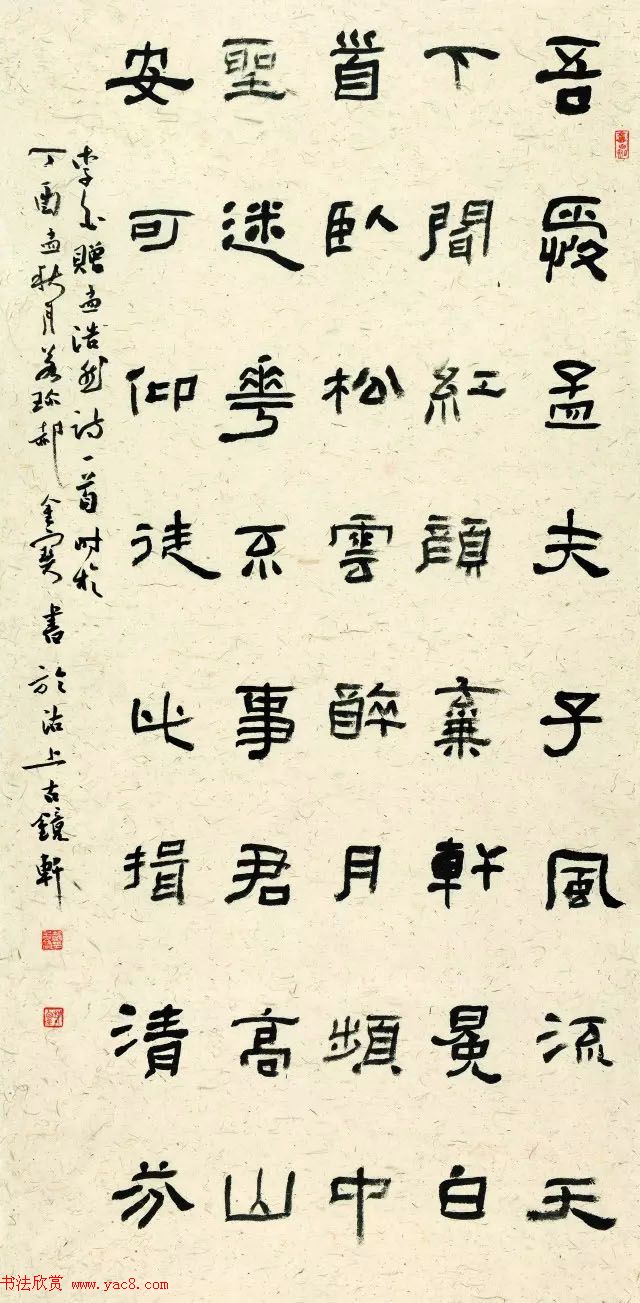 吾愛孟夫子風流天
下聞紅顏棄軒冕白
首臥松雲醉月頻中
聖迷華不事君高山
安可仰徒此揖清芬
李白贈孟浩然詩一首时於
丁酉孟秋月郝金寶書於沽上古鏡軒
书法欣赏 www.yac8.com